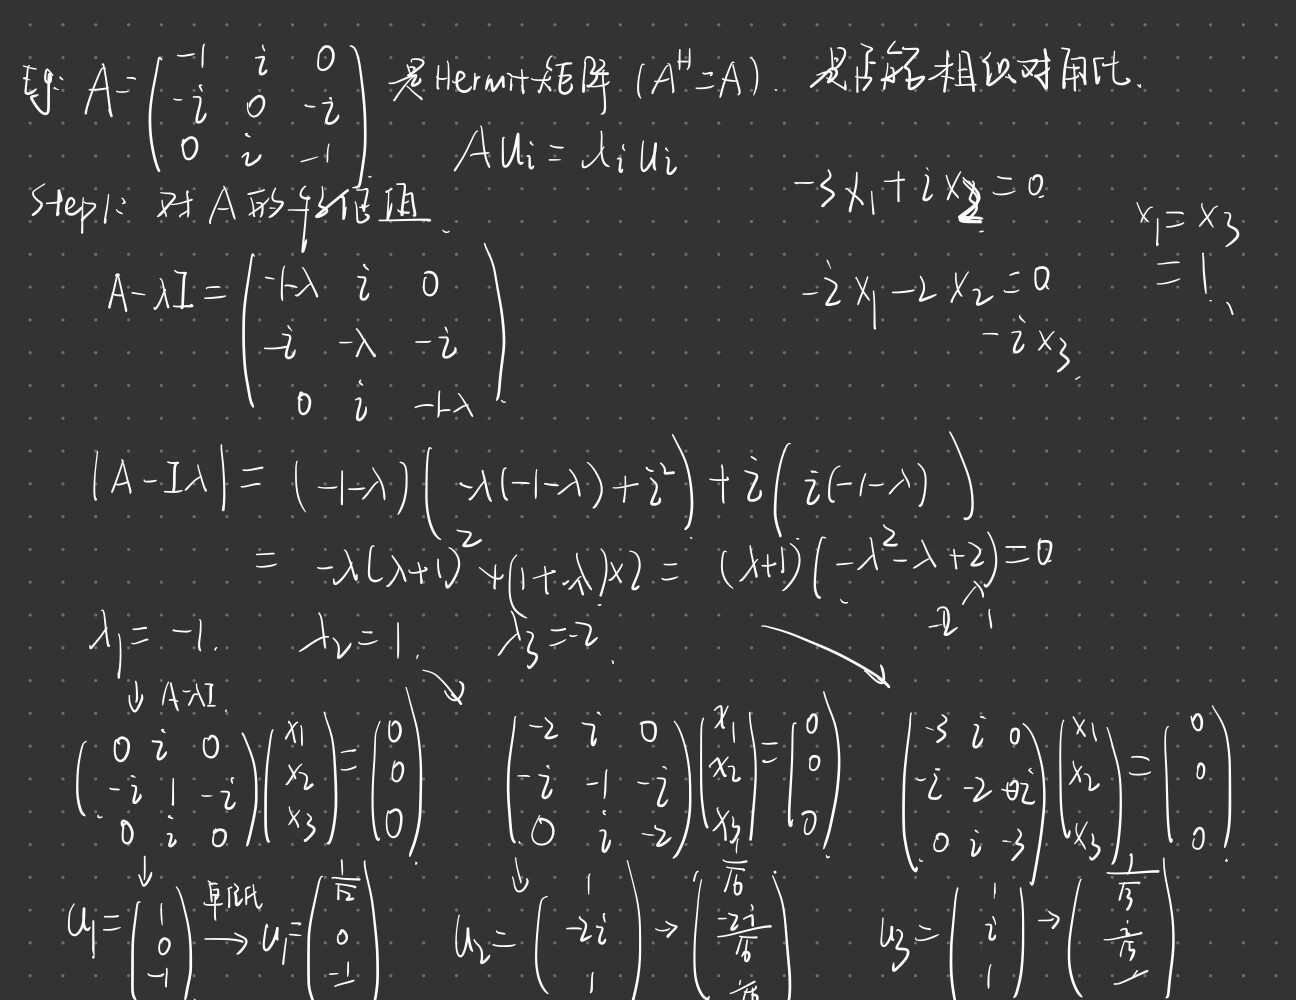 Eg: A = ( -1 i 0 ; -i 0 -i ; 0 i -1 ) 是 Hermit 矩阵 (A^H = A). 是否能相似对角化.
A u_i = λ_i u_i
Step1: 对 A 的特征值
-3x_1 + i x_2 = 0
x_1 = x_3
= 1.
-i x_1 - 2 x_2 = 0
- i x_3.
A - λI = ( -1-λ i 0 ; -i -λ -i ; 0 i -1-λ )
|A - Iλ| = (-1-λ)( -λ(-1-λ) + i^2 ) + i( i(-1-λ) )
= -λ(λ+1)^2 + (1+λ)×2 = (λ+1)(-λ^2 - λ + 2) = 0
-2 1
λ_1 = -1. λ_2 = 1. λ_3 = -2.
↓ A-λI.
( 0 i 0 ; -i 1 -i ; 0 i 0 ) ( x_1 ; x_2 ; x_3 ) = ( 0 ; 0 ; 0 )
( -2 i 0 ; -i -1 -i ; 0 i -2 ) ( x_1 ; x_2 ; x_3 ) = ( 0 ; 0 ; 0 )
( -3 i 0 ; -i -2 -i ; 0 i -3 ) ( x_1 ; x_2 ; x_3 ) = ( 0 ; 0 ; 0 )
u_1 = ( 1 ; 0 ; -1 ) 单位化 → u_1 = ( 1/√2 ; 0 ; -1
u_2 = ( 1 ; -2i ; 1 ) → ( 1/√6 ; -2i/√6 ; 1/√6
u_3 = ( 1 ; i ; 1 ) → ( 1/√3 ; i/√3